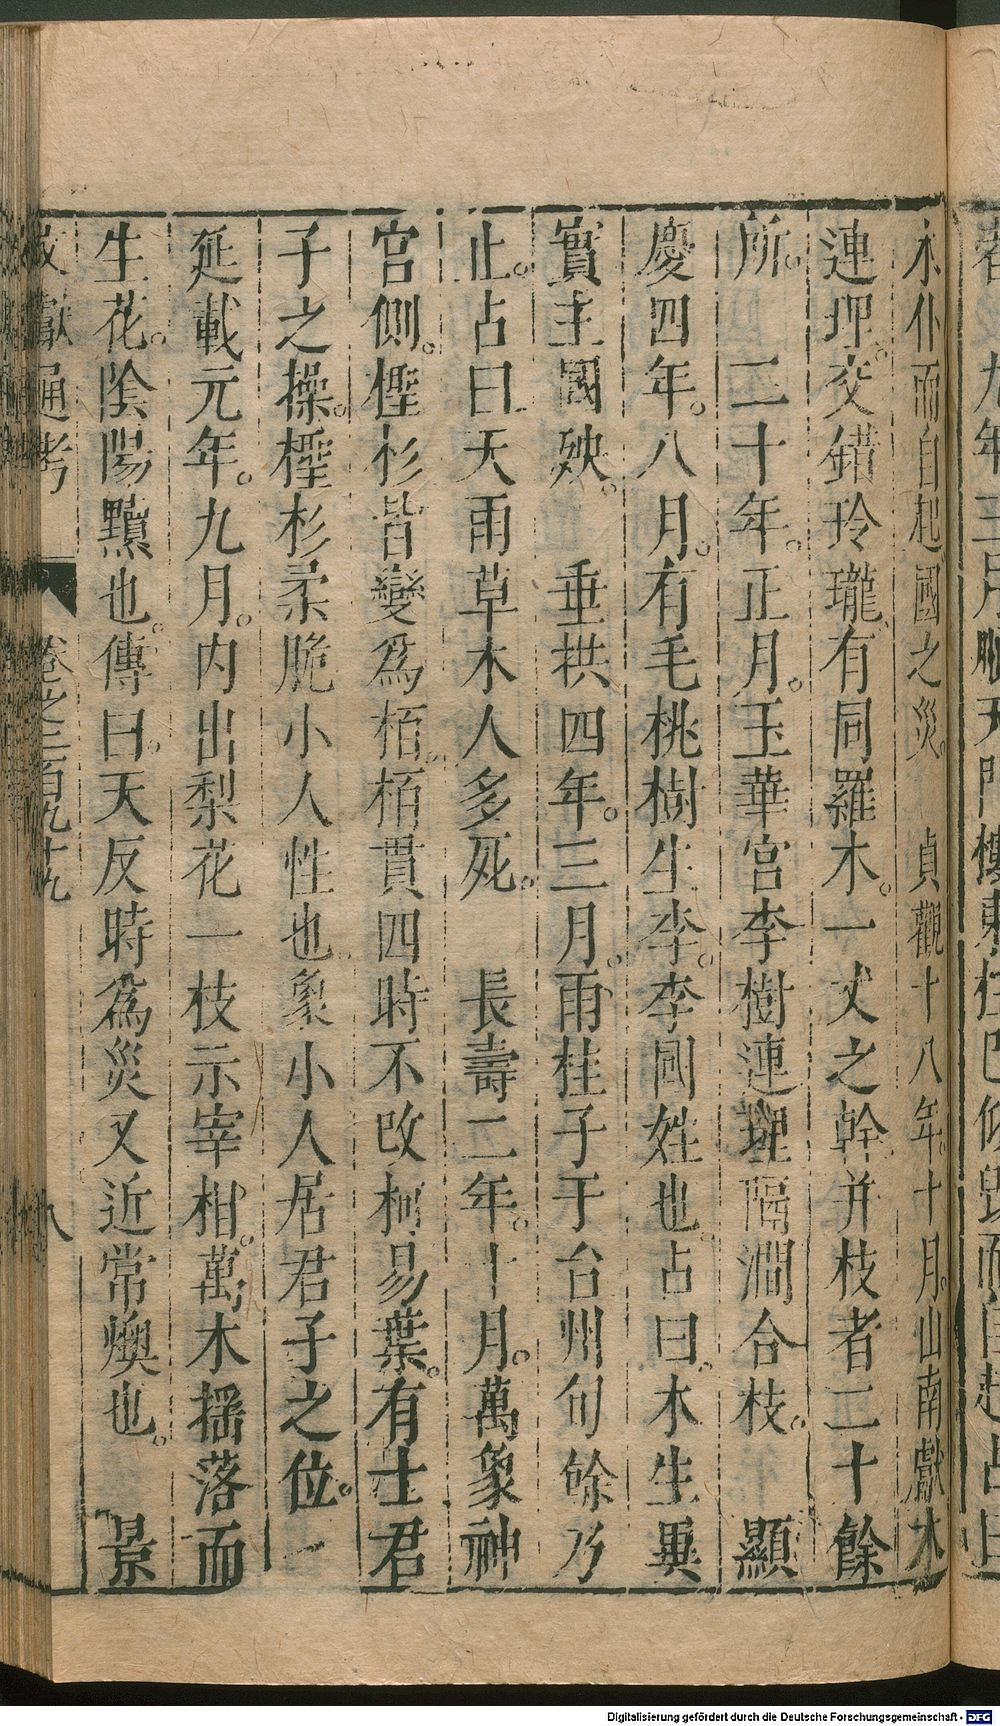 木仆而自起國之災　貞觀十八年十月山南獻木
連理交錯玲瓏有同羅木一丈之幹并枝者二十餘
所　二十年正月玉華宮李樹連理隔澗合枝　顯
慶四年八月有毛桃樹生李李國姓也占曰木生異
實主國殃　垂拱四年三月雨桂子于台州旬餘乃
止占曰天雨草木人多死　長壽二年十月萬象神
宮側檉杉皆變爲栢栢貫四時不改柯易葉有士君
子之操檉杉柔脆小人性也象小人居君子之位
延載元年九月内出梨花一枝示宰相萬木揺落而
生花陰陽黷也傳曰天反時爲災又近常燠也　景
文獻通考　卷之三百九十九　八
Digitalisierung gefördert durch die Deutsche Forschungsgemeinschaft - DFG